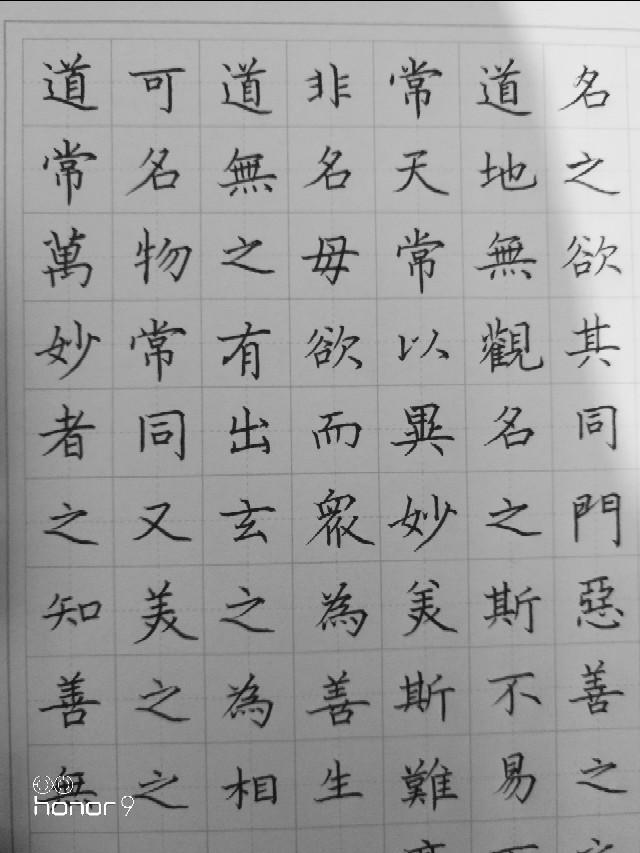 道可道非常道名
常名無名天地之
萬物之母常無欲
妙常有欲以觀其
者同出而異名同
之又玄眾妙之門
知美之為美斯惡
善之為善斯不善
無之相生難易之
honor 9